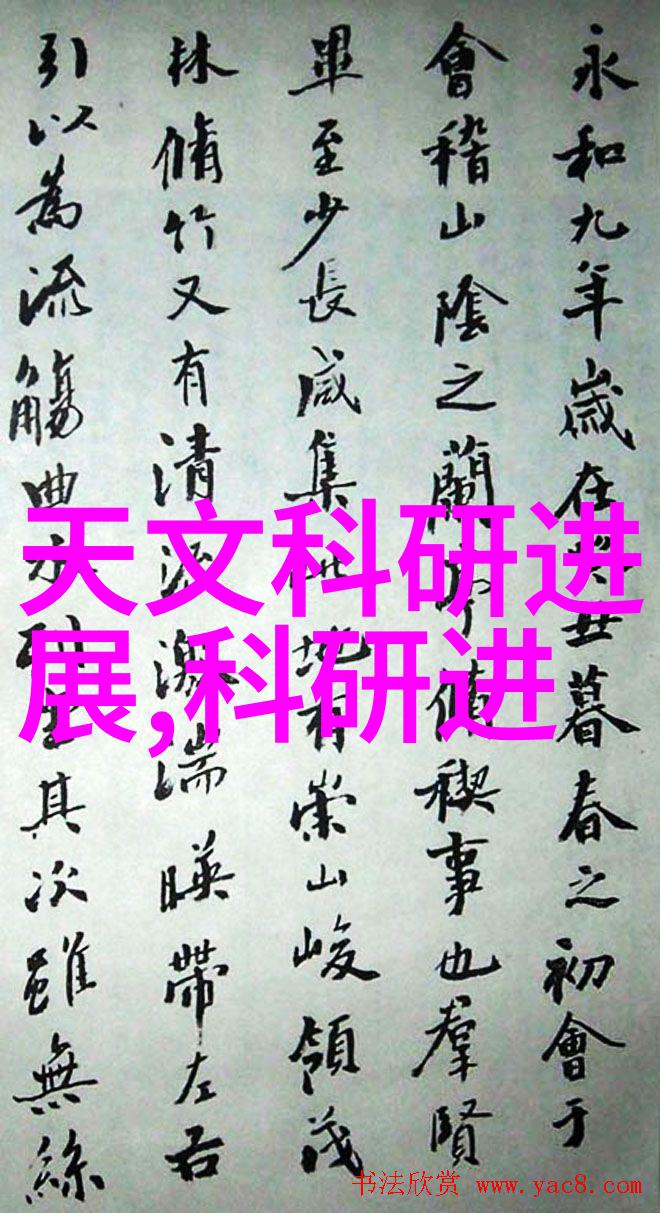 永和九年歲在癸丑暮春之初會于
會稽山陰之蘭亭脩稧事也羣賢
畢至少長咸集此地有崇山峻領茂
林脩竹又有清流激湍暎帶左右
引以為流觴曲水列坐其次雖無絲
天文科研进
展,科研进
书法欣赏 www.yac8.com